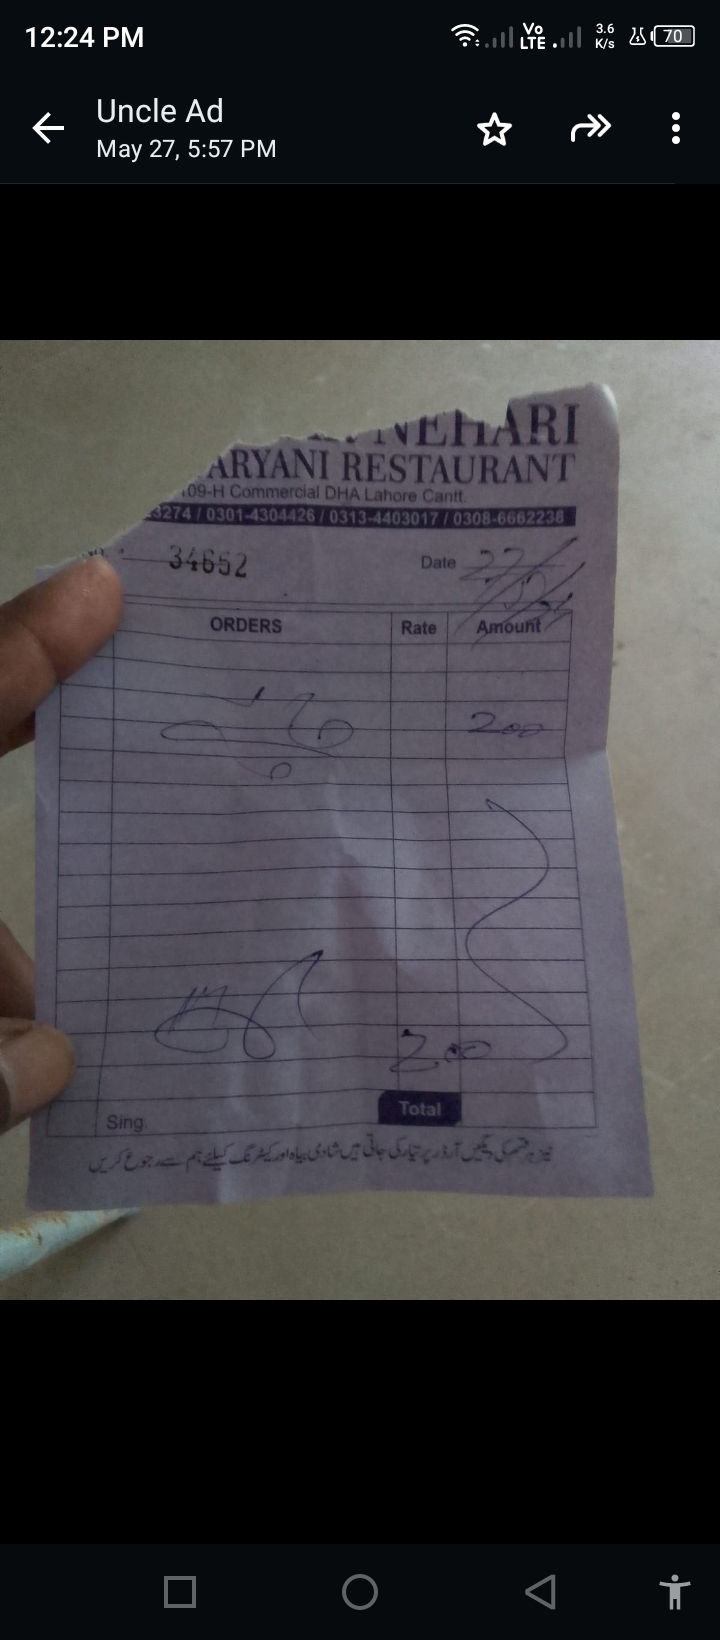 12:24 PM
Vo LTE
3.6 K/s
70
Uncle Ad
May 27, 5:57 PM
NEHARI
ARYANI RESTAURANT
09-H Commercial DHA Lahore Cantt.
3274 / 0301-4304426 / 0313-4403017 / 0308-6662238
34652
Date 27/
ORDERS Rate Amount
200
200
Total
Sing.
نیز ہر قسم کی دیگیں آرڈر پر تیار کی جاتی ہیں شادی بیاہ اور کیٹرنگ کیلئے ہم سے رجوع کریں